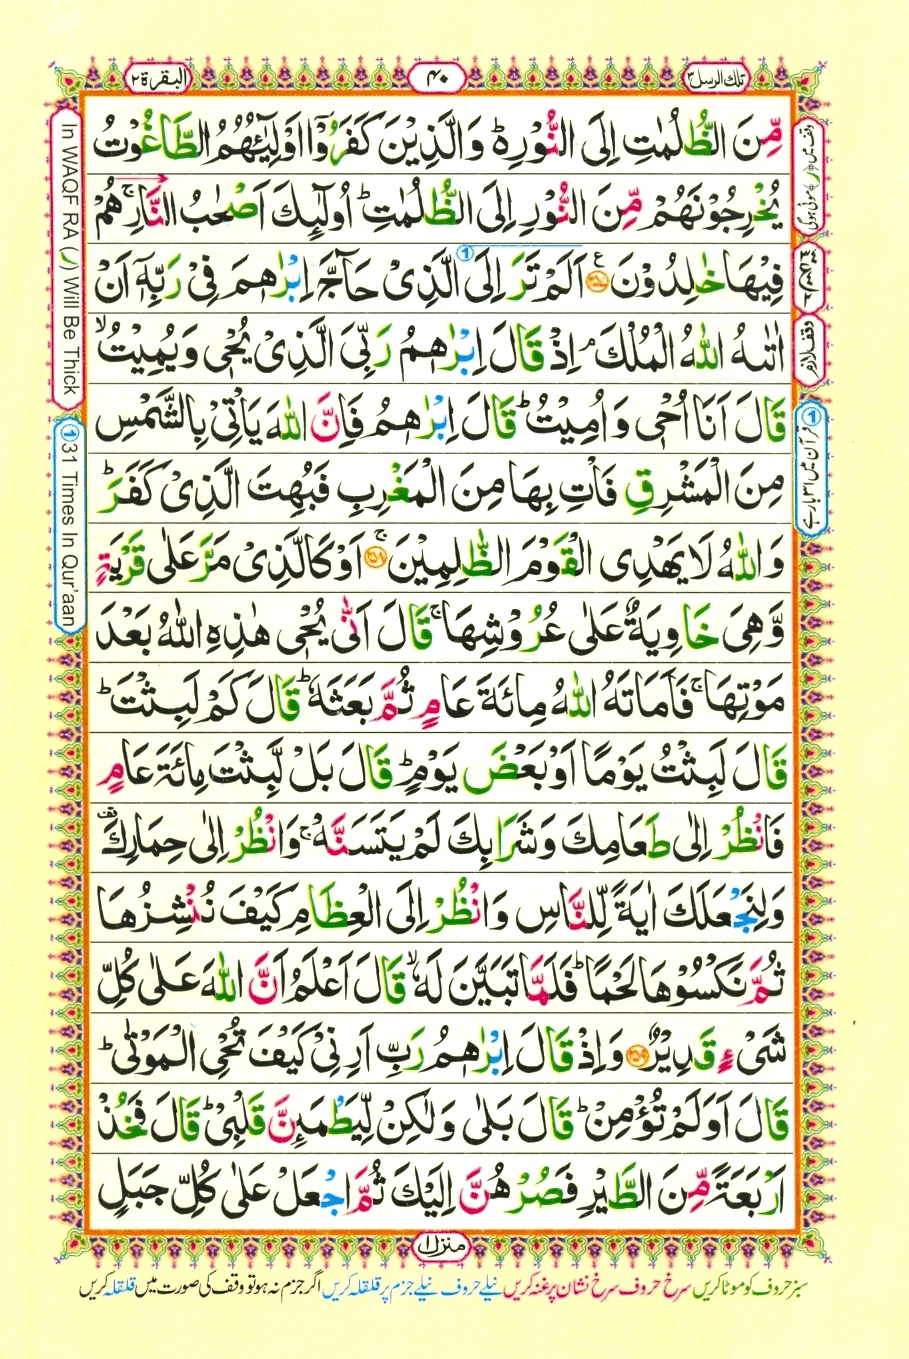 تلك الرسل ٣
٤٠
البقرة ٢
مِّنَ الظُّلُمٰتِ اِلَى النُّوْرِ۬ؕ وَالَّذِيْنَ كَفَرُوْۤا اَوْلِيٰٓئُهُمُ الطَّاغُوْتُ
يُخْرِجُوْنَهُمْ مِّنَ النُّوْرِ اِلَى الظُّلُمٰتِؕ اُولٰٓئِكَ اَصْحٰبُ النَّارِۚ هُمْ
فِيْهَا خٰلِدُوْنَ ﴿۲۵۷﴾ اَلَمْ تَرَ اِلَى الَّذِىْ حَآجَّ اِبْرٰهٖمَ فِىْ رَبِّهٖۤ اَنْ
اٰتٰىهُ اللّٰهُ الْمُلْكَۘ اِذْ قَالَ اِبْرٰهٖمُ رَبِّىَ الَّذِىْ يُحْىٖ وَيُمِيْتُۙ
قَالَ اَنَا اُحْىٖ وَاُمِيْتُؕ قَالَ اِبْرٰهٖمُ فَاِنَّ اللّٰهَ يَاْتِىْ بِالشَّمْسِ
مِنَ الْمَشْرِقِ فَاْتِ بِهَا مِنَ الْمَغْرِبِ فَبُهِتَ الَّذِىْ كَفَرَؕ
وَاللّٰهُ لَا يَهْدِى الْقَوْمَ الظّٰلِمِيْنَۚ ﴿۲۵۸﴾ اَوْ كَالَّذِىْ مَرَّ عَلٰى قَرْيَةٍ
وَّهِىَ خَاوِيَةٌ عَلٰى عُرُوْشِهَاۚ قَالَ اَنّٰى يُحْىٖ هٰذِهِ اللّٰهُ بَعْدَ
مَوْتِهَاۚ فَاَمَاتَهُ اللّٰهُ مِائَةَ عَامٍ ثُمَّ بَعَثَهٗؕ قَالَ كَمْ لَبِثْتَؕ
قَالَ لَبِثْتُ يَوْمًا اَوْ بَعْضَ يَوْمٍؕ قَالَ بَلْ لَّبِثْتَ مِائَةَ عَامٍ
فَانْظُرْ اِلٰى طَعَامِكَ وَشَرَابِكَ لَمْ يَتَسَنَّهْۚ وَانْظُرْ اِلٰى حِمَارِكَ
وَلِنَجْعَلَكَ اٰيَةً لِّلنَّاسِ وَانْظُرْ اِلَى الْعِظَامِ كَيْفَ نُنْشِزُهَا
ثُمَّ نَكْسُوْهَا لَحْمًاؕ فَلَمَّا تَبَيَّنَ لَهٗۙ قَالَ اَعْلَمُ اَنَّ اللّٰهَ عَلٰى كُلِّ
شَىْءٍ قَدِيْرٌ ﴿۲۵۹﴾ وَاِذْ قَالَ اِبْرٰهٖمُ رَبِّ اَرِنِىْ كَيْفَ تُحْىِ الْمَوْتٰىؕ
قَالَ اَوَلَمْ تُؤْمِنْؕ قَالَ بَلٰى وَلٰكِنْ لِّيَطْمَئِنَّ قَلْبِىْؕ قَالَ فَخُذْ
اَرْبَعَةً مِّنَ الطَّيْرِ فَصُرْهُنَّ اِلَيْكَ ثُمَّ اجْعَلْ عَلٰى كُلِّ جَبَلٍ
منزل ١
سبز حروف کو موٹا کریں سرخ حروف سرخ نشان پر غنہ کریں نیلے حروف نیلے جزم پر قلقلہ کریں اگر جزم نہ ہو تو وقف کی صورت میں قلقلہ کریں
In WAQF RA (ر) Will Be Thick
① 31 Times In Qur'aan
وقف لازم
① قرآن میں ۳۱ بار ہے